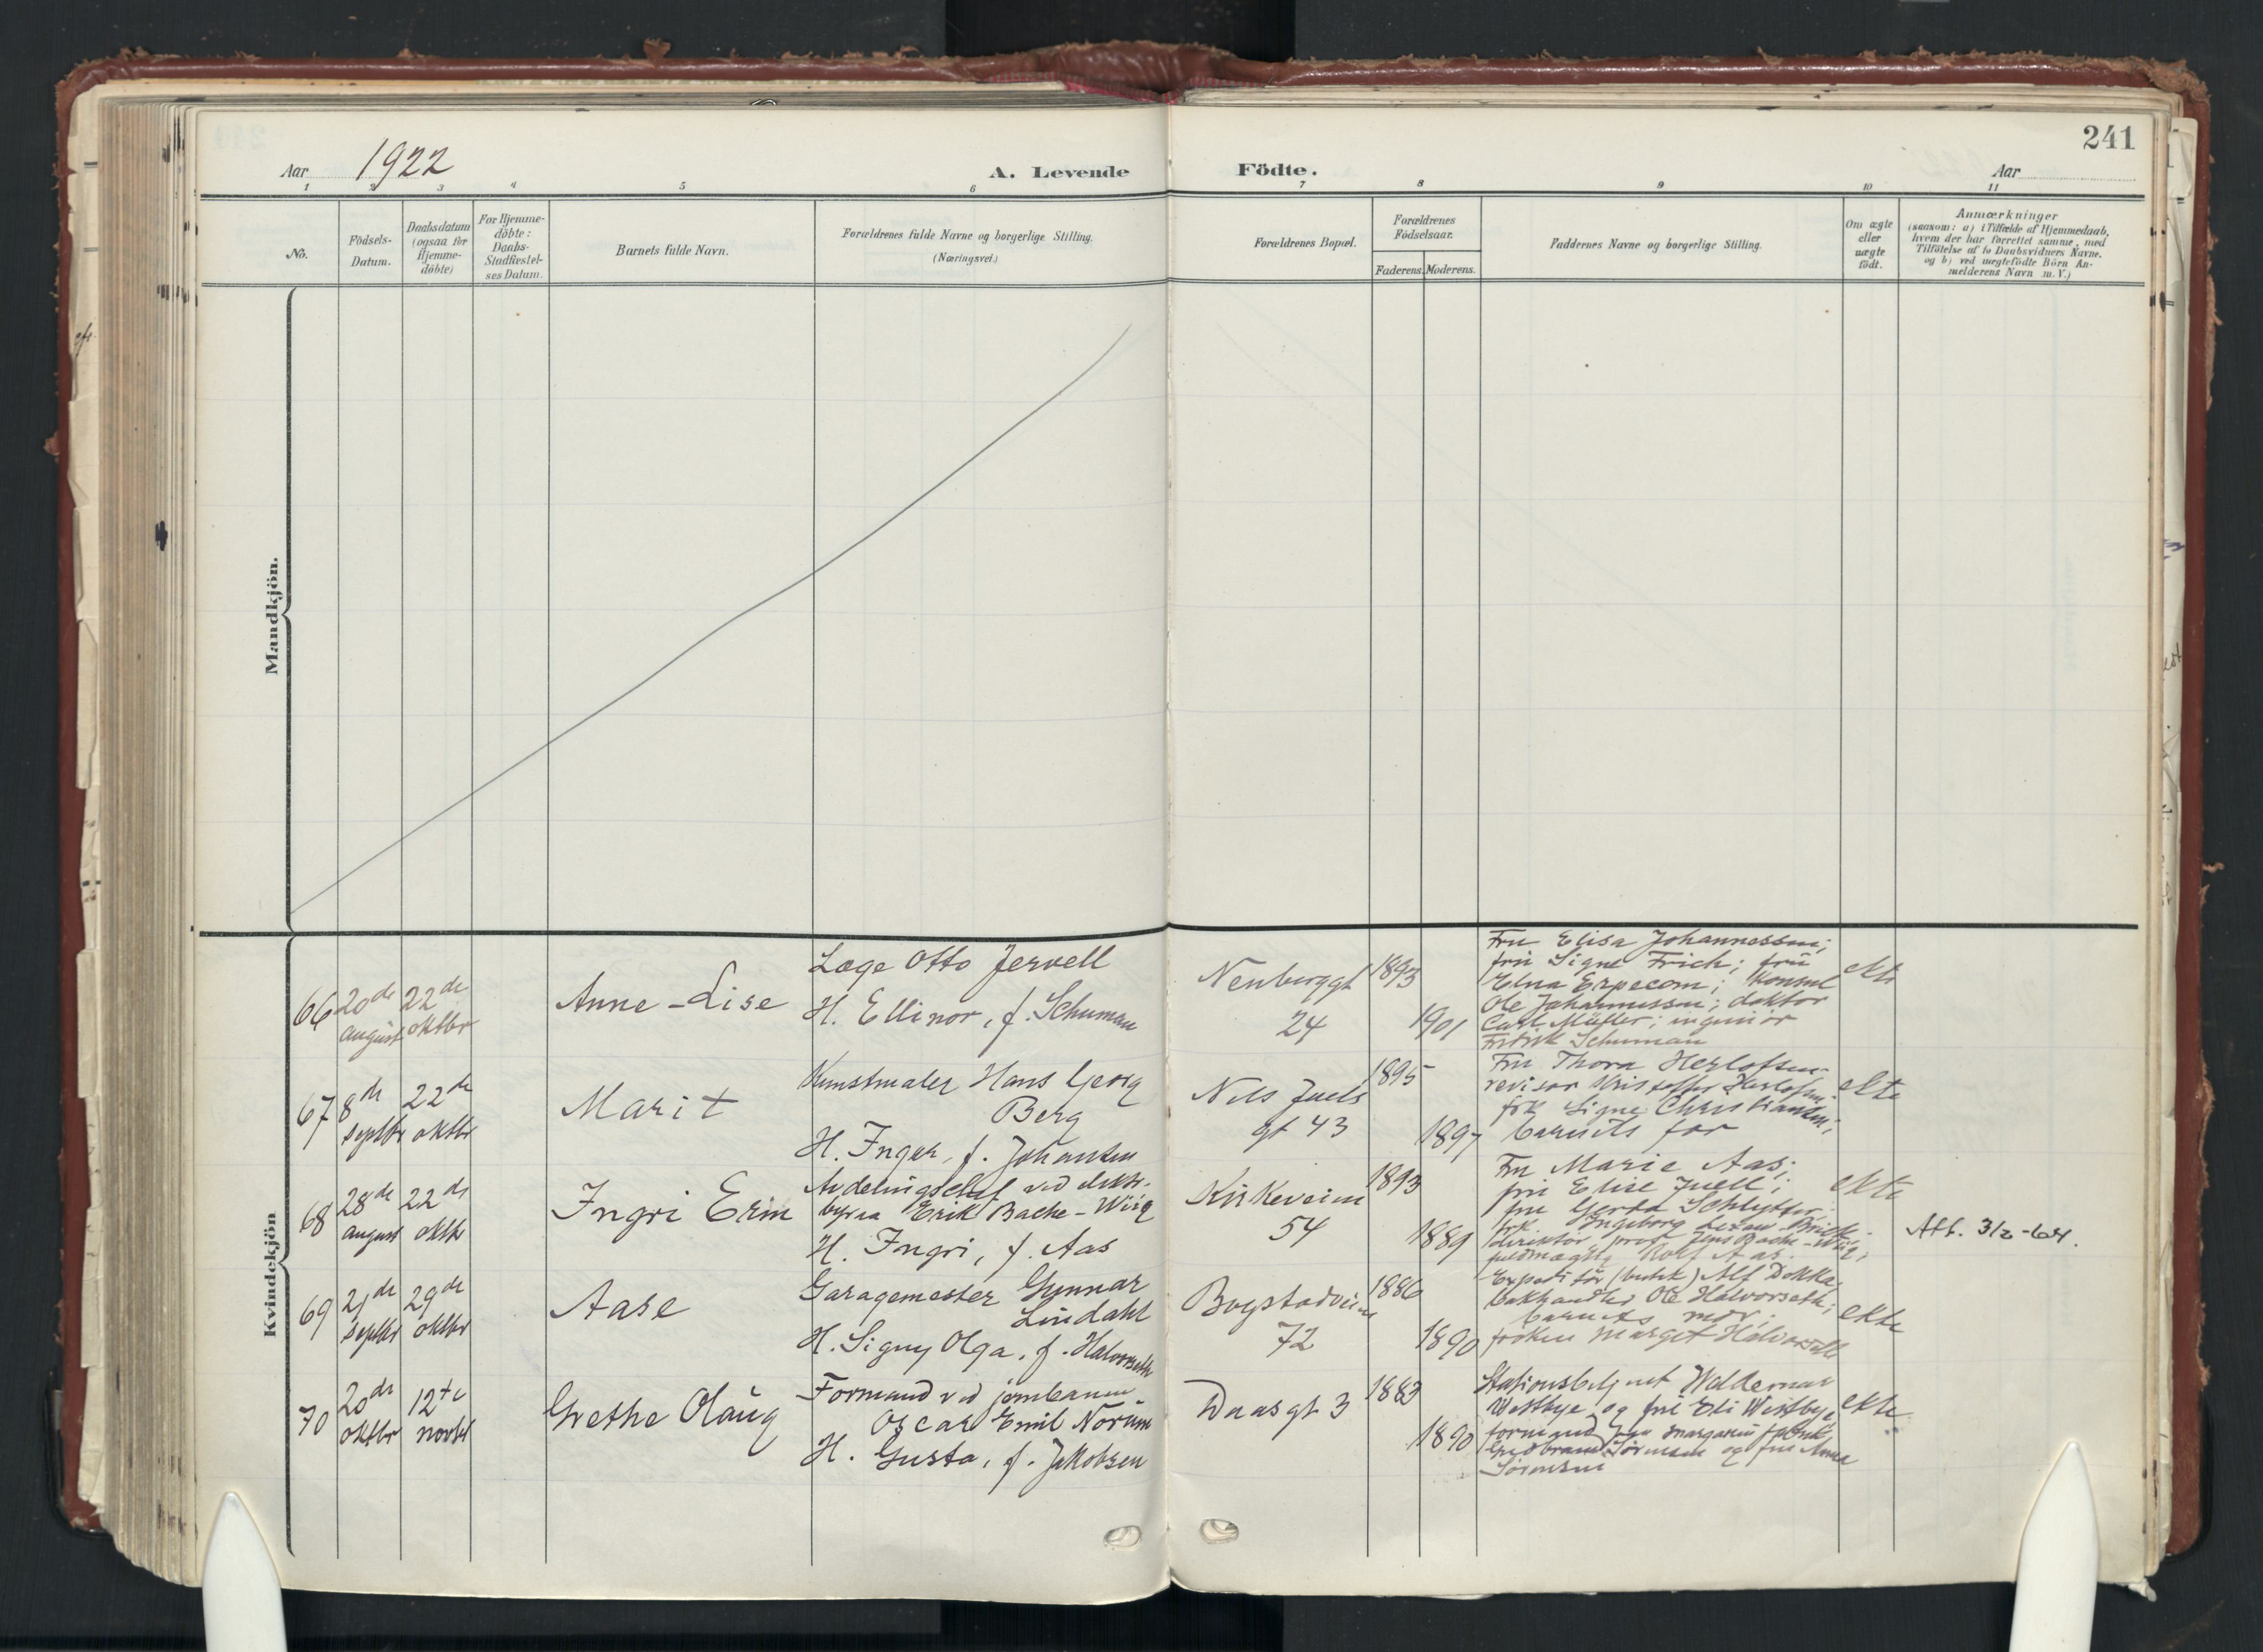 241
Aar 1922
A. Levende Födte.
Aar
1 2 3 4 5 6 7 8 9 10 11
No.
Födsels-
Datum.
Daabsdatum
(ogsaa for
Hjemme-
döbte)
For Hjemme-
döbte:
Daabs-
Stadfæstel-
ses Datum.
Barnets fulde Navn.
Forældrenes fulde Navne og borgerlige Stilling.
(Næringsvei.)
Forældrenes Bopæl.
Forældrenes
Födselsaar.
Faderens. Moderens.
Faddernes Navne og borgerlige Stilling.
Om ægte
eller
uægte
födt.
Anmærkninger
(saasom: a) i Tilfælde af Hjemmedaab,
hvem der har forrettet samme, med
Tilföielse af to Daabsvidners Navne.
og b) ved uægtefödte Börn An-
melderens Navn m. V.)
Mandkjön.
Kvindekjön
66
20de
august
22de
oktbr
Anne-Lise
Læge Otto Jervell
H. Ellinor, f. Schuman
Neuberggt
24
1893
1901
Fru Elisa Johannessen;
fru Signe Frich; fru
Edna Expecom; Konsul
Ole Johannessen; doktor
Carl Müller; ingeniör
Fritsk Schuman
ekte
67
8de
septbr
22de
oktbr
Marit
Kunstmaler Hans Georg
Berg
H. Inger, f. Johansen
Nils Juels
gt 43
1895
1897
Fru Thora Herlofsen
revisor Kristoffer Herlofsen
frk Signe Christiansen;
barnets far
ekte
68
28de
august
22de
oktbr
Ingri Erin
Avdelingschef ved elektr.
byraa Erik Bache-Wiig
H. Ingri, f. Aas
Kirkeveien
54
1893
1889
Fru Marie Aas;
fru Elise Juell;
fru Gerda Schlytter;
frk. Ingeborg
direktör prof Jens Bache-Wiig;
fuldmægtig Rolf Aas.
ekte
Att. 3/2-64.
69
21de
septbr
29de
oktbr
Aase
Garagemester Gunnar
Lindahl
H. Signy Olga, f. Halvorseth
Bogstadveien
72
1886
1890
Expeditör (butik) Alf Dokka,
Ole Halvorseth;
barnets mor;
fröken Marget Halvorseth
ekte
70
20de
oktbr
12te
novbr
Grethe Olaug
Formand ved jernbanen
Oscar Emil Norum
H. Gusta, f. Jakobsen
Daasgt 3
1883
1890
Stationsbetjent Waldemar
Westbye og fru Eli Westbye
formand margarinfabrik
Gudbrand Sörensen og fru Anna
Sörensen
ekte